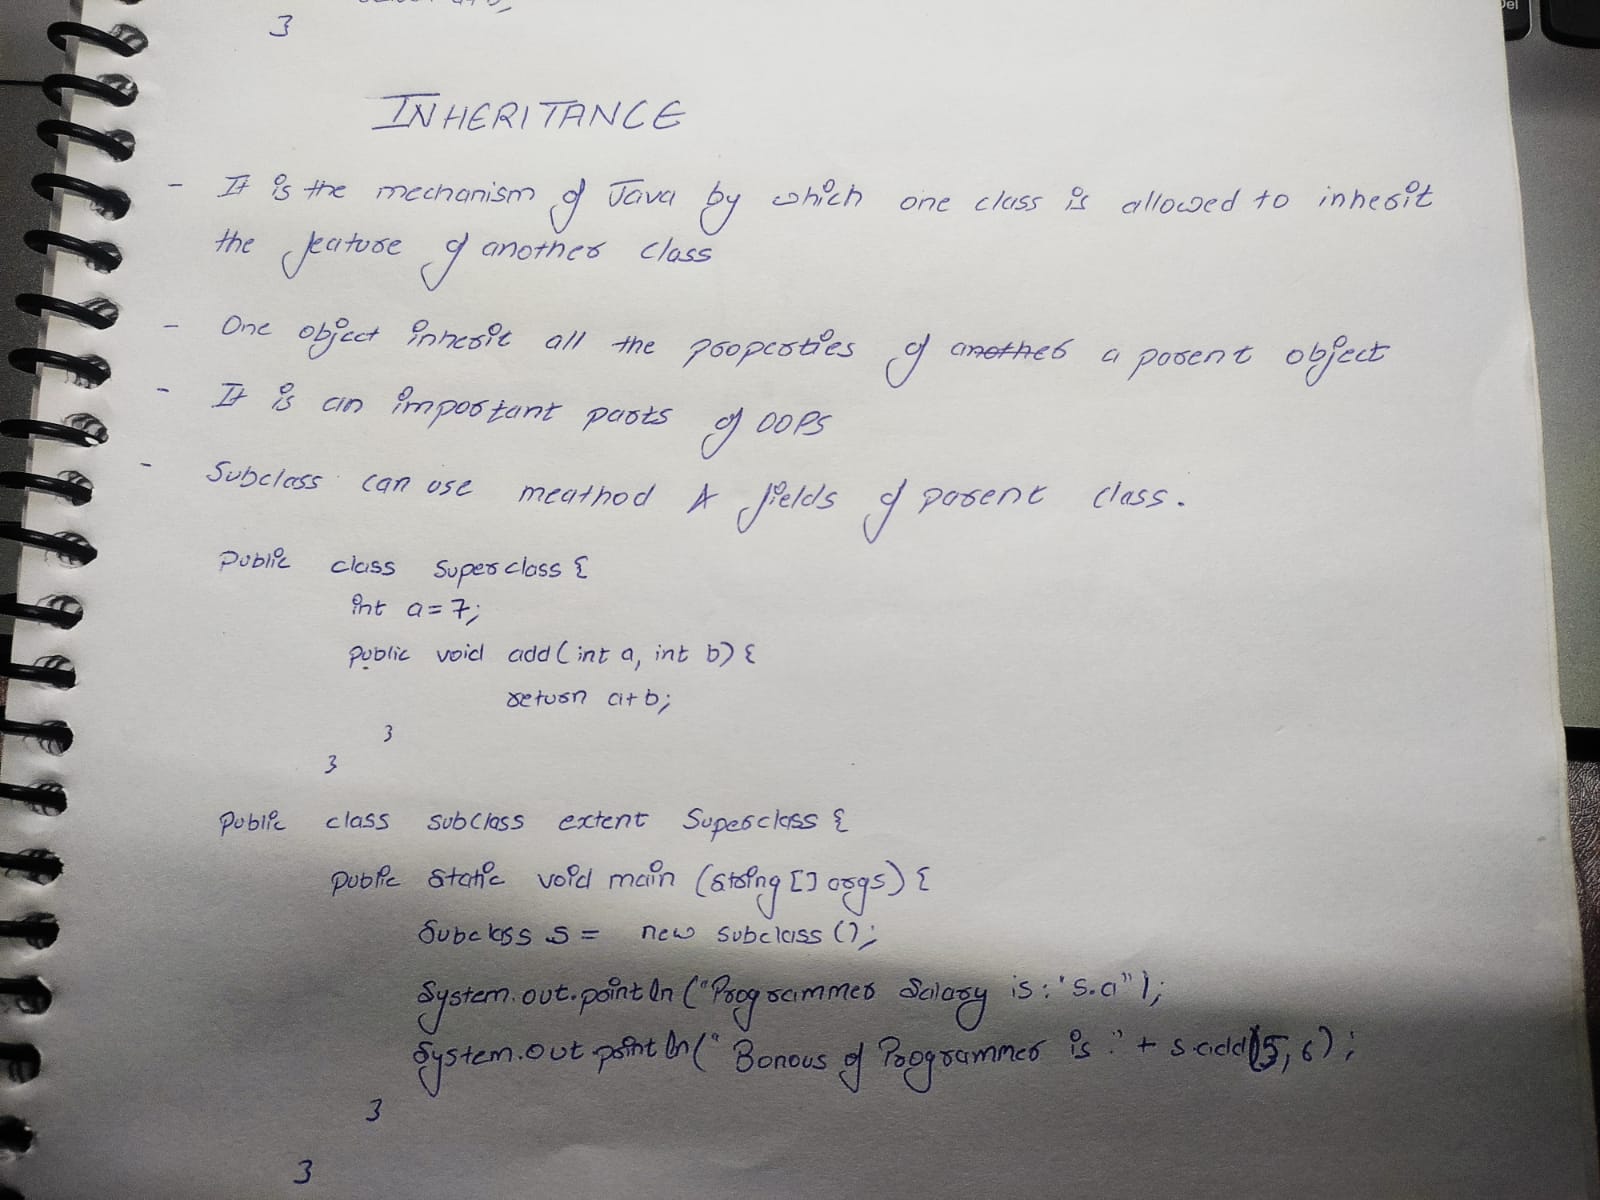 }
INHERITANCE
- It is the mechanism of Java by which one class is allowed to inherit
the feature of another class
- One object inherit all the properties of another a parent object
- It is an important parts of OOPS
- Subclass can use meathod & fields of parent class.
Public class Superclass {
int a = 7;
public void add(int a, int b) {
return a+b;
}
}
Public class subclass extent Superclass {
Public static void main (String [] args) {
Subclass s = new subclass ();
System.out.println ("Programmer Salary is: "s.a");
System.out.println(" Bonous of Programmer is :" + s.add(5, 6);
}
}